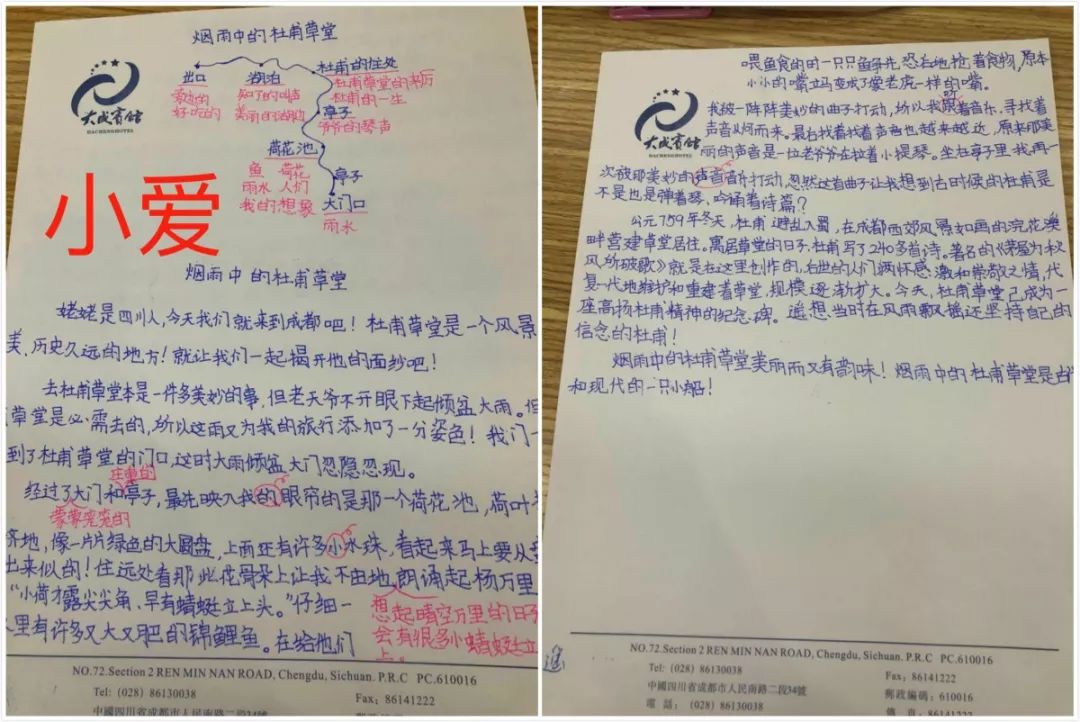 烟雨中的杜甫草堂
出口
卖边的
好吃的
湖泊
知了的叫声
美丽的湖边
杜甫的住处
杜甫草堂的来历
杜甫的一生
亭子
爷爷的琴声
荷花池
鱼 荷花
雨水 人们
我的想象
亭子
大门口
雨水
大成宾馆
DACHENGHOTEL
小爱
烟雨中的杜甫草堂
姥姥是四川人,今天我们就来到成都吧!杜甫草堂是一个风景
美,历史久远的地方!就让我们一起揭开他的面纱吧!
去杜甫草堂本是一件多美妙的事,但老天爷不开眼下起倾盆大雨。但
草堂是必需去的,所以这雨又为我的旅行添加了一分姿色!我们一
到了杜甫草堂的门口,这时大雨倾盆大门忽隐忽现。
庄重的
经过了大门和亭子,最先映入我的眼帘的是那一个荷花池,荷叶
蒙蒙
济地,像一片片绿色的大圆盘,上面还有许多小水珠,看起来马上要从
出来似的!往远处看那些花骨朵上让我不由地朗诵起杨万里
“小荷才露尖尖角,早有蜻蜓立上头。”仔细一
想起晴空万里的日子
里有许多又大又肥的锦鲤鱼。在给他们
会有很多小蜻蜓立
上。
NO.72.Section 2 REN MIN NAN ROAD, Chengdu, Sichuan. P.R.C PC.610016
Tel: (028) 86130038
Fax: 86141222
中國四川省成都市人民南路二段34號
喂食的时一只只鱼争先恐右地抢着食物,原本
小小的嘴立马变成了像老虎一样的嘴。
大成宾馆
DACHENGHOTEL
我被一阵阵美妙的曲子打动,所以我跟着音乐,寻找着
声音从何而来。最右找着找着声音也越来越近,原来那美
丽的声音是一位老爷爷在拉着小提琴。坐在亭子里我再一
次被那美妙的声音打动,忽然这首曲子让我想到古时候的杜甫是
不是也是弹着琴、吟诵着诗篇?
公元759年冬天,杜甫避乱入蜀,在成都西郊风景如画的浣花溪
畔营建草堂居住。寓居草堂的日子,杜甫写了240多首诗。著名的《茅屋为秋
风所破歌》就是在这里创作的,右世的人们满怀感激和崇敬之情,代
复一代地维护和重建着草堂,规模逐渐扩大。今天,杜甫草堂已成为一
座高扬杜甫精神的纪念碑。遥想当时在风雨飘摇还坚持自己的
信念的杜甫!
烟雨中的杜甫草堂美丽而又有韵味!烟雨中的杜甫草堂是古
和现代的一只小船!
遥
NO.72.Section 2 REN MIN NAN ROAD, Chengdu, Sichuan. P.R.C PC.610016
Tel: (028) 86130038
Fax: 86141222
中國四川省成都市人民南路二段34號
郵政編碼: 610016
電 話: (028) 86130038
傳 真: 86141222